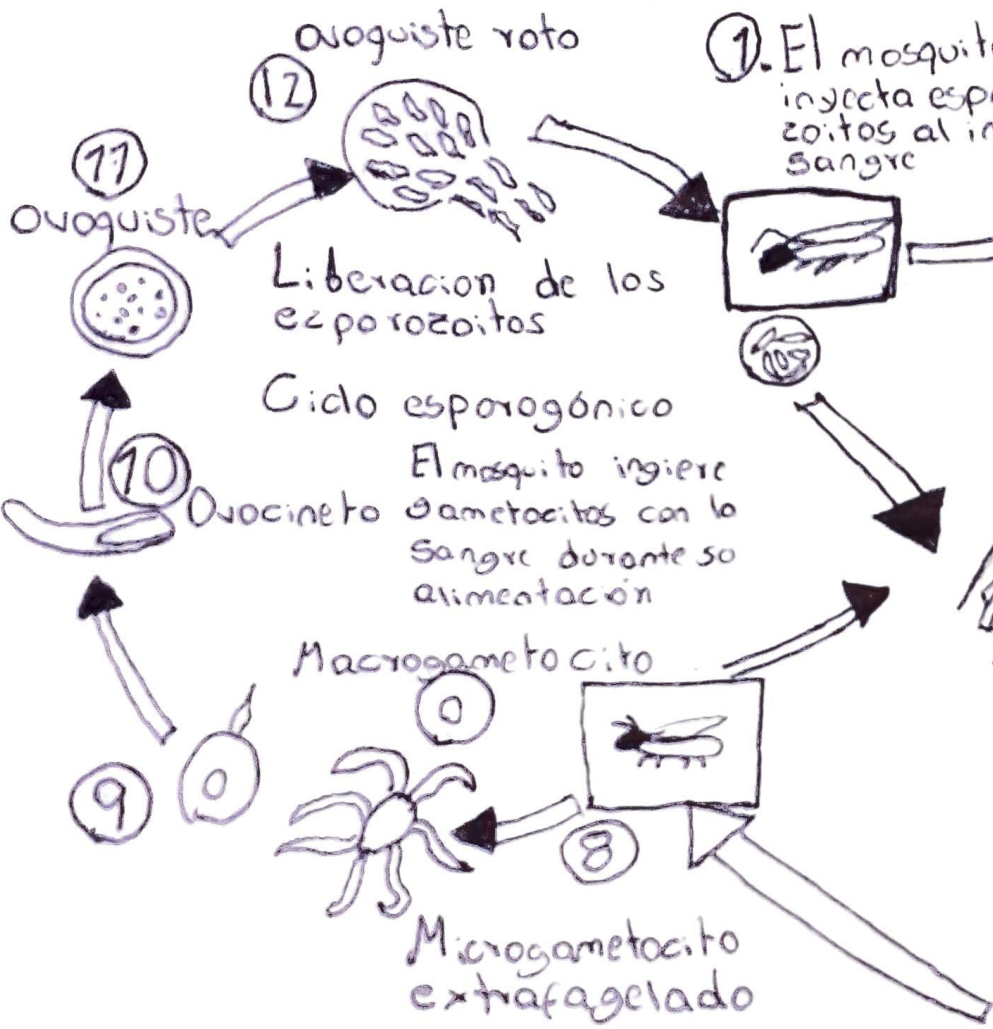 ovoquiste roto
12
1. El mosquit
inyecta esp
zoitos al in
sangre
11
Ovoquiste
Liberacion de los
ezporozoitos
Ciclo esporogónico
10
Ovocineto
El mosquito ingiere
gametocitos con la
sangre durante su
alimentación
Macrogametocito
9
8
Microgametocito
extrafagelado